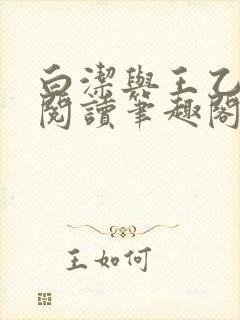 白潔與王乙
閱讀筆趣閣
王如何